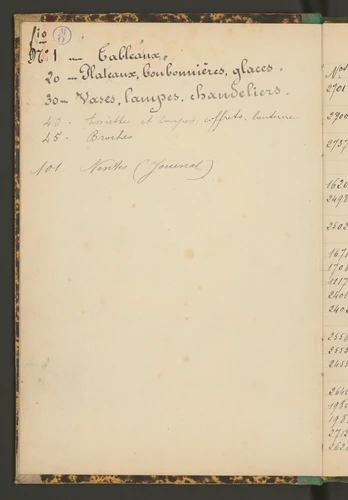 fio
Nos 1 — Tableaux.
20 — Plateaux, bonbonnières, glaces.
30 — Vases, lampes, chandeliers.
40 - assiettes et coupes, coffrets,
45 - Broches
101 Ventes (Journal)
Nos
2701
2900
2737
1620
2498
2403
1671
1708
1117
2401
2402
2556
2555
2455
2640
1980
1981
2713
2620